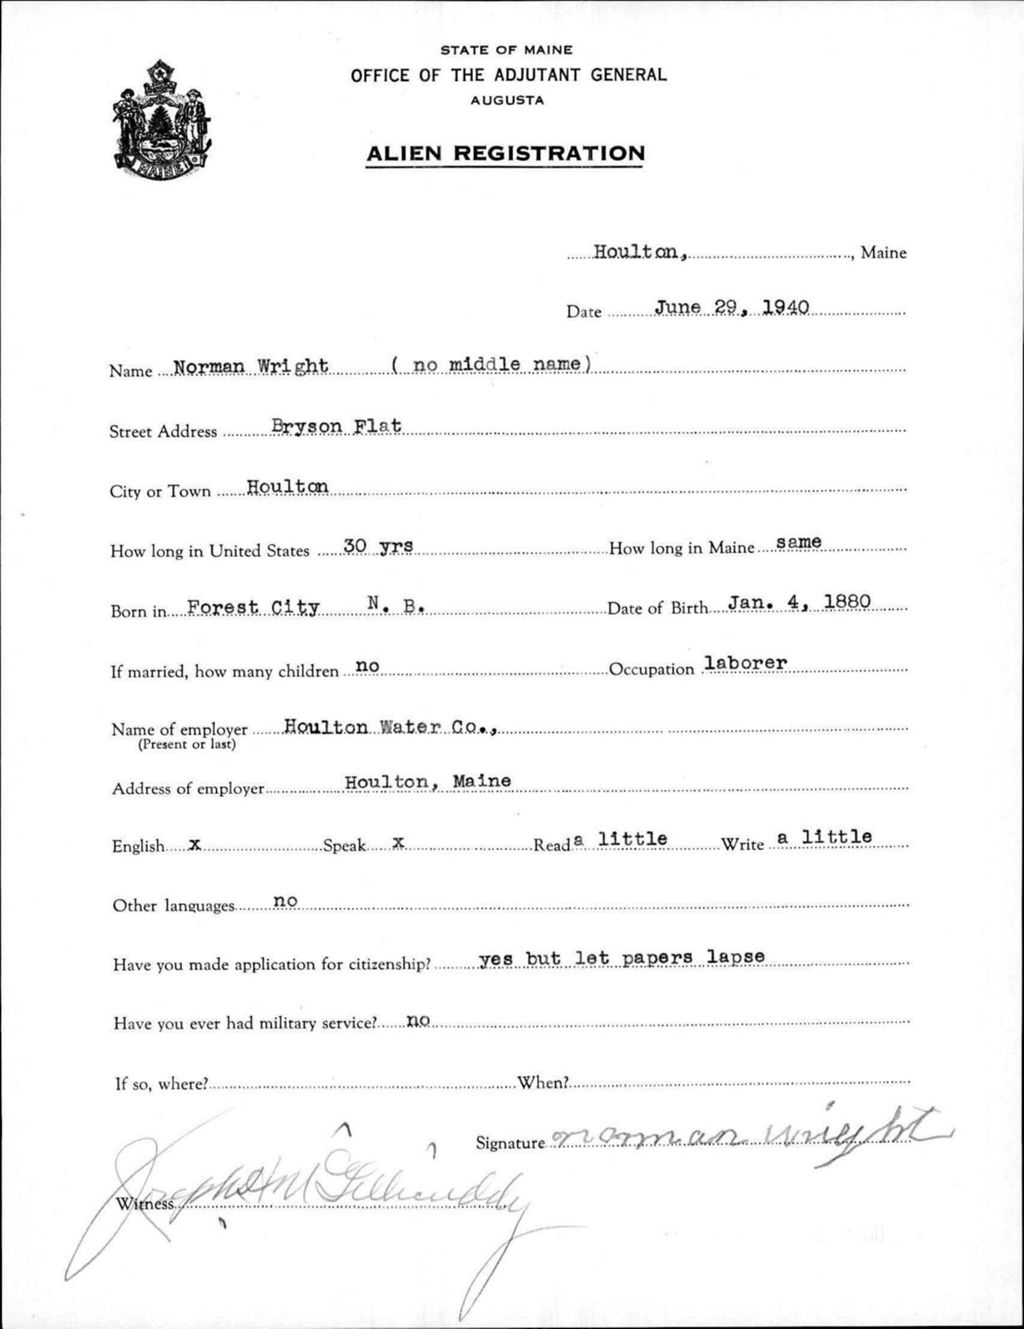 STATE OF MAINE
OFFICE OF THE ADJUTANT GENERAL
AUGUSTA
ALIEN REGISTRATION
MAINE
Houlton, , Maine
Date June 29, 1940
Name Norman Wright ( no middle name)
Street Address Bryson Flat
City or Town Houlton
How long in United States 30 yrs How long in Maine same
Born in Forest City N. B. Date of Birth Jan. 4, 1880
If married, how many children no Occupation laborer
Name of employer Houlton Water Co.,
(Present or last)
Address of employer Houlton, Maine
English x Speak x Read a little Write a little
Other languages no
Have you made application for citizenship? yes but let papers lapse
Have you ever had military service? no
If so, where? When?
Signature norman wright
Witness Joseph